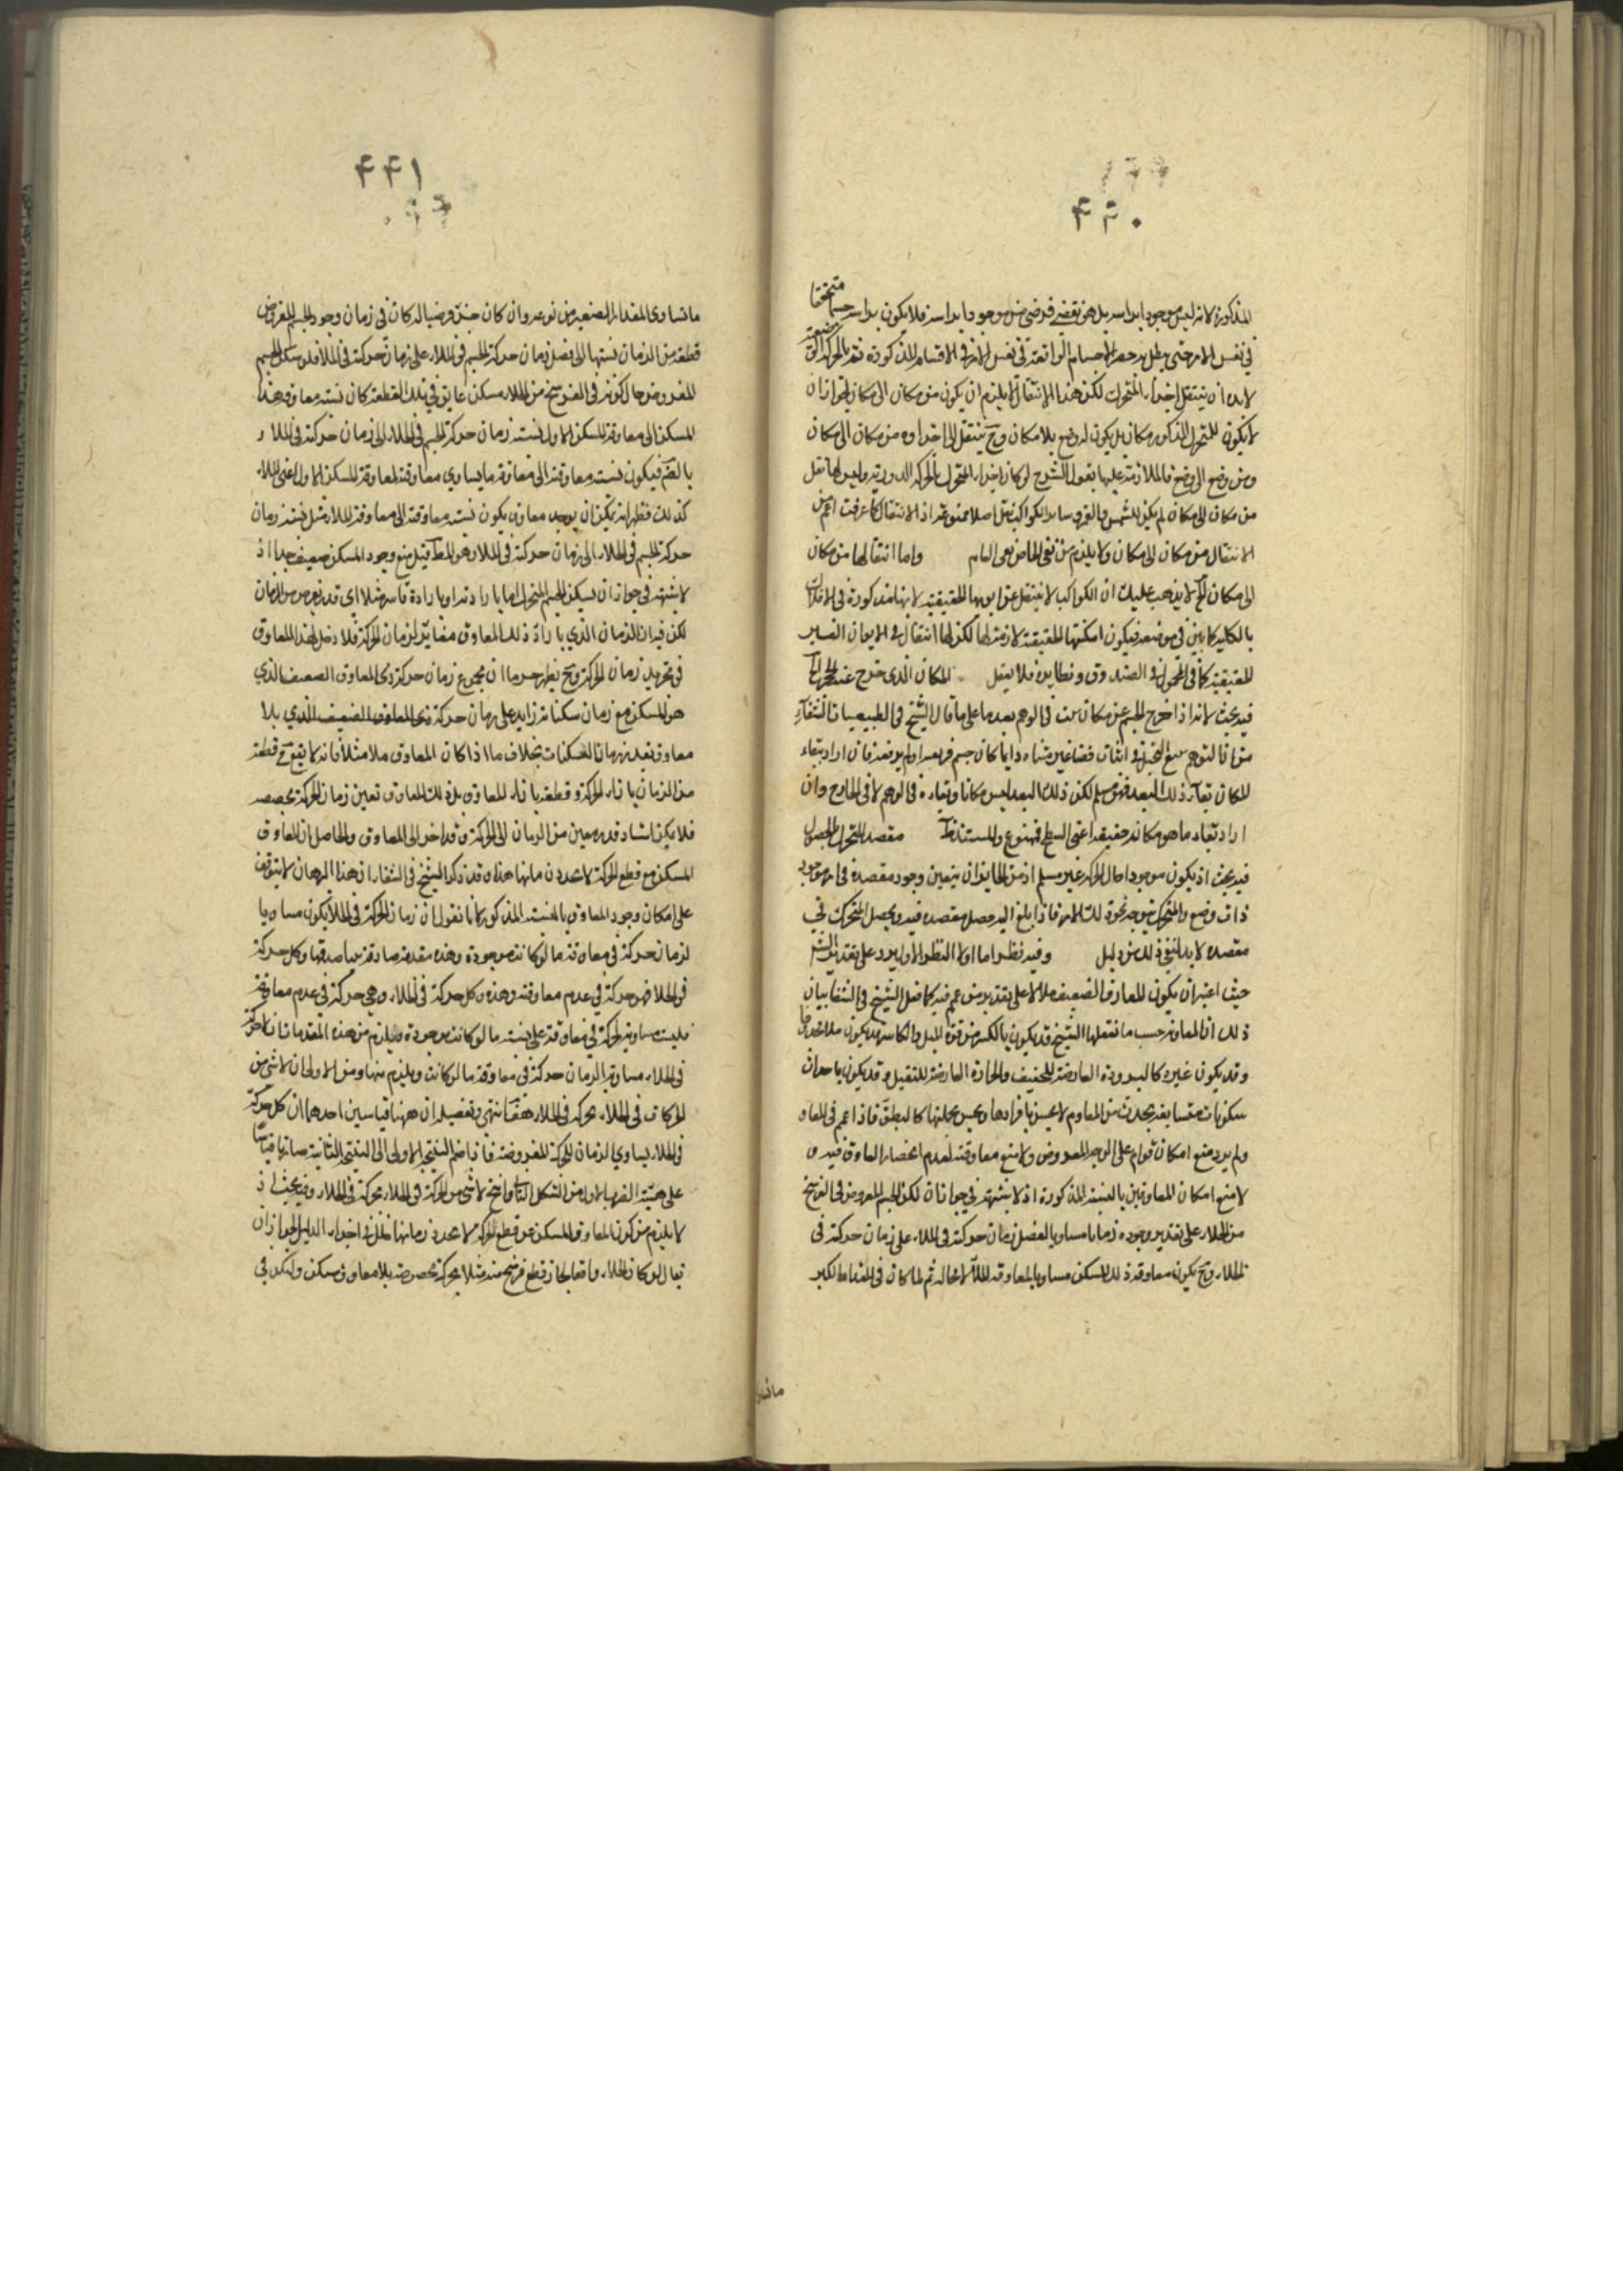 ۴۳۰
المذكورة لانه ليس موجودا براسه بل هو نقيض فرضي موجودا براسه فلا يكون براسه جسما متحققا
في نفس الامر حتى يبطل به حصر الاجسام الواقعة في نفس الامر في الاقسام المذكورة
لابد ان ينتقل اجزاء المتحرك لكن هذا الانتقال لا يلزم ان يكون من مكان الى مكان لجواز ان
لا يكون للمتحرك المذكور مكان بل يكون له وضع بلا مكان وح ينتقل اجزاؤه من مكان الى مكان
ومن وضع الى وضع فالملازمة عليها بقول الشرح لو كان اجزاء المتحرك بالحركة الدورية
من مكان الى مكان لم يكن للشمس والقمر وسائر الكواكب اصلا ممنوعة اذ الانتقال كما عرفت اعم من
الانتقال من مكان الى مكان ولا يلزم من نفي الخاص نفي العام واما انتقالها من مكان
الى مكان لا يذهب عليك ان الكواكب لا تنتقل عن الحقيقية لانها مذكورة في الافلاك
بالكلية كما بين في موضعه فيكون امكنتها الحقيقية لازمة لها لكن لها انتقال في الايون الغير
الحقيقية كما في المحول في الصندوق ونظايره فلا يقل المكان الذي خرج عنه
فيه بحث لانه اذا خرج الجسم عن مكان في الوهم بعد ما على ما قال الشيخ في الطبيعيات الشفاء
المكان بقاء ذلك البعد فهو مسلم لكن ذلك البعد ليس مكانا وبقاؤه في الوهم لا في الخارج وان
اراد بقاء ما هو مكانه حقيقة اعني السطح فممنوع والمستند مقصد المتحرك الحصول
فيه بحث اذ يكون موجودا حال الحركة غير مسلم اذ من الجايز ان يتعين وجود مقصده
ذات وضع والمتحرك يتوجه نحو ذلك الامر فاذا بلغ اليه حصل مقصده فيه ويحصل المتحرك في
مقصده لابد لنفي ذلك من دليل وفيه نظر اما اولا النظر الاول يرد على تقدير الشرح
حيث اعتبر ان يكون المعاوق الضعيف ملاء لا على تقدير من عم فيه كما فعل الشيخ في الشفا بيان
ذلك ان المعاوق حسب ما نقلها الشيخ قد يكون بالكسر من قوة الميل والكاسر قد يكون ملاء
وقد يكون غيره كالبرودة العارضة للخفيف والحرارة العارضة للثقيل وقد يكون باحداث
سكونات متتابعة يحدث من المعاوم لا يحس بافرادها ويحس بجملتها كالبطؤ فاذا اعم في المعاو
ولم يرد منع امكان قوام على الوجه المفروض ولا منع معاوقته لعدم انحصار المعاوق فيه و
لا منع امكان المعاوقين بالنسبة المذكورة اذ لا شبهة في جواز ان لكن الجسم المفروض في الفرسخ
من الخلاء على تقدير وجوده زمانا مساويا لفضل زمان حركته في الملاء على زمان حركته في
الخلاء وح يكون معاوقة ذلك المسكن مساويا لمعاوقة الملاء لا محالة ثم لما كان في المقدار الكبير
ماتساوى
۴۴۱
ما تساوى المقدار الصغير من نوعه وان كان فرضيا له كان في زمان وجود الجسم المفروض
قطعة من الزمان نسبتها الى فضل زمان حركة الجسم في الملاء على زمان حركته في الخلاء فلو سكن الجسم
المفروض حال كونه في الفرسخ من الخلاء مسكن عايق في تلك القطعة كان نسبة معاوقة هذا
المسكن الى معاوقة المسكن الاول كنسبة زمان حركة الجسم في الخلاء الى زمان حركته في الملاء
فيكون نسبة معاوقته الى معاوقة ما يساوي معاوقته لمعاوقة المسكن الاول اعني الملاء
كذلك فظهر انه يمكن ان يوجد معاوق يكون نسبة معاوقته الى معاوقة الملاء مثل نسبة زمان
حركة الجسم في الخلاء الى زمان حركته في الملاء وهو المط قيل منع وجود المسكن ضعيف جدا اذ
لا شبهة في جواز ان يسكن الجسم المتحرك اما بارادته او بارادة قاسر مثلا اي قدر يفرض من الزمان
لكن فيه ان الزمان الذي بازاء ذلك المعاوق مغاير لزمان الحركة فلا دخل لهذا المعاوق
في تحديد زمان الحركة وح يظهر جرما ان مجموع زمان حركة ذي المعاوق الضعيف الذي
هو المسكن مع زمان سكناته زايد على زمان حركة ذي المعاوق الضعيف الذي بلا
معاوق بقدر زمان السكنات بخلاف ما اذا كان المعاوق ملاء مثلا فانه لا يقع ح قطعة
من الزمان بازاء الحركة وقطعة بازاء المعاوق بل ذلك المعاوق تعين زمان الحركة بحصصه
فلا يمكن اسناد قدر معين من الزمان الى الحركة وقدر اخر الى المعاوق والحاصل ان المعاوق
المسكن مع قطع الحركة لا يحدد زمانها هذا وقد ذكر الشيخ في الشفاء ان هذا البرهان لا يتوقف
على امكان وجود المعاوق بالنسبة المذكورة لانا نقول ان زمان الحركة في الخلاء يكون مساويا
لزمان حركة في معاوقة ما لو كانت موجودة وهذه مقدمة صادقة بينا صدقها وكل حركة
في الخلاء فهو حركة في عدم معاوقة وهذه وكل حركة في الخلاء وهي حركة في عدم معاوقة
فليست مساوية لحركة في معاوقة على نسبة ما لو كانت موجودة ويلزم من هذه المقدمات ان لا حركة
في الخلاء مساوية الزمان حركة في معاوقة ما لو كانت ويلزم منها ومن الاولى ان لا شيء من
الحركات في الخلاء بحركة في الخلاء هف انتهى وتفصيله ان ههنا قياسين احدهما ان كل حركة
في الخلاء يساوي الزمان للحركة المفروضة فاذا ضم النتيجة الاولى الى النتيجة الثانية صارتا قياسا
على هيئة الضرب الاول من الشكل الثاني فانتج لا شيء من الحركة في الخلاء بحركة في الخلاء وفيه بحث اذ
لا يلزم من كون المعاوق المسكن عن قطع الحركة لا يحدد زمانها خلل في اجزاء الدليل لجواز ان
يقال لو كان الخلاء واقعا لجاز قطع فرسخ منه مثلا بحركة مخصوصة بلا معاوق مسكن وليكن في